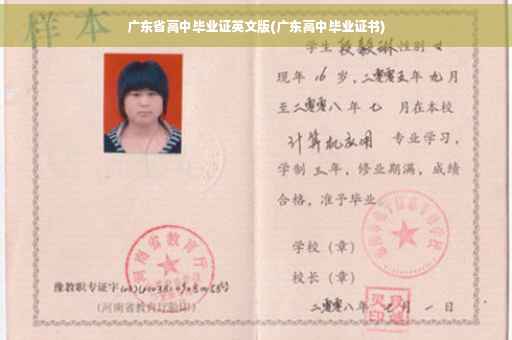 广东省高中毕业证英文版(广东高中毕业证书)
样本
学生段毅琳性别女
现年16岁，二零零五年九月
至二零零八年七月在本校
计算机应用 专业学习，
学制三年，修业期满，成绩
合格，准予毕业
学校（章）
校长（章）
二零零八年七月一日
河南省教育厅
豫教职专证字
(河南省教育厅验印)